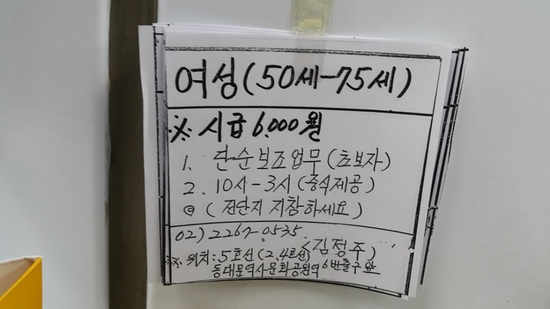 여성(50세-75세)
※ 시급 6,000원
1. 단순보조업무(초보자)
2. 10시-3시(중식제공)
@ (전단지 지참하세요)
02) 2267-0535
<김정주>
※ 위치:5호선(2,4호선)
동대문역사문화공원역 6번출구 앞